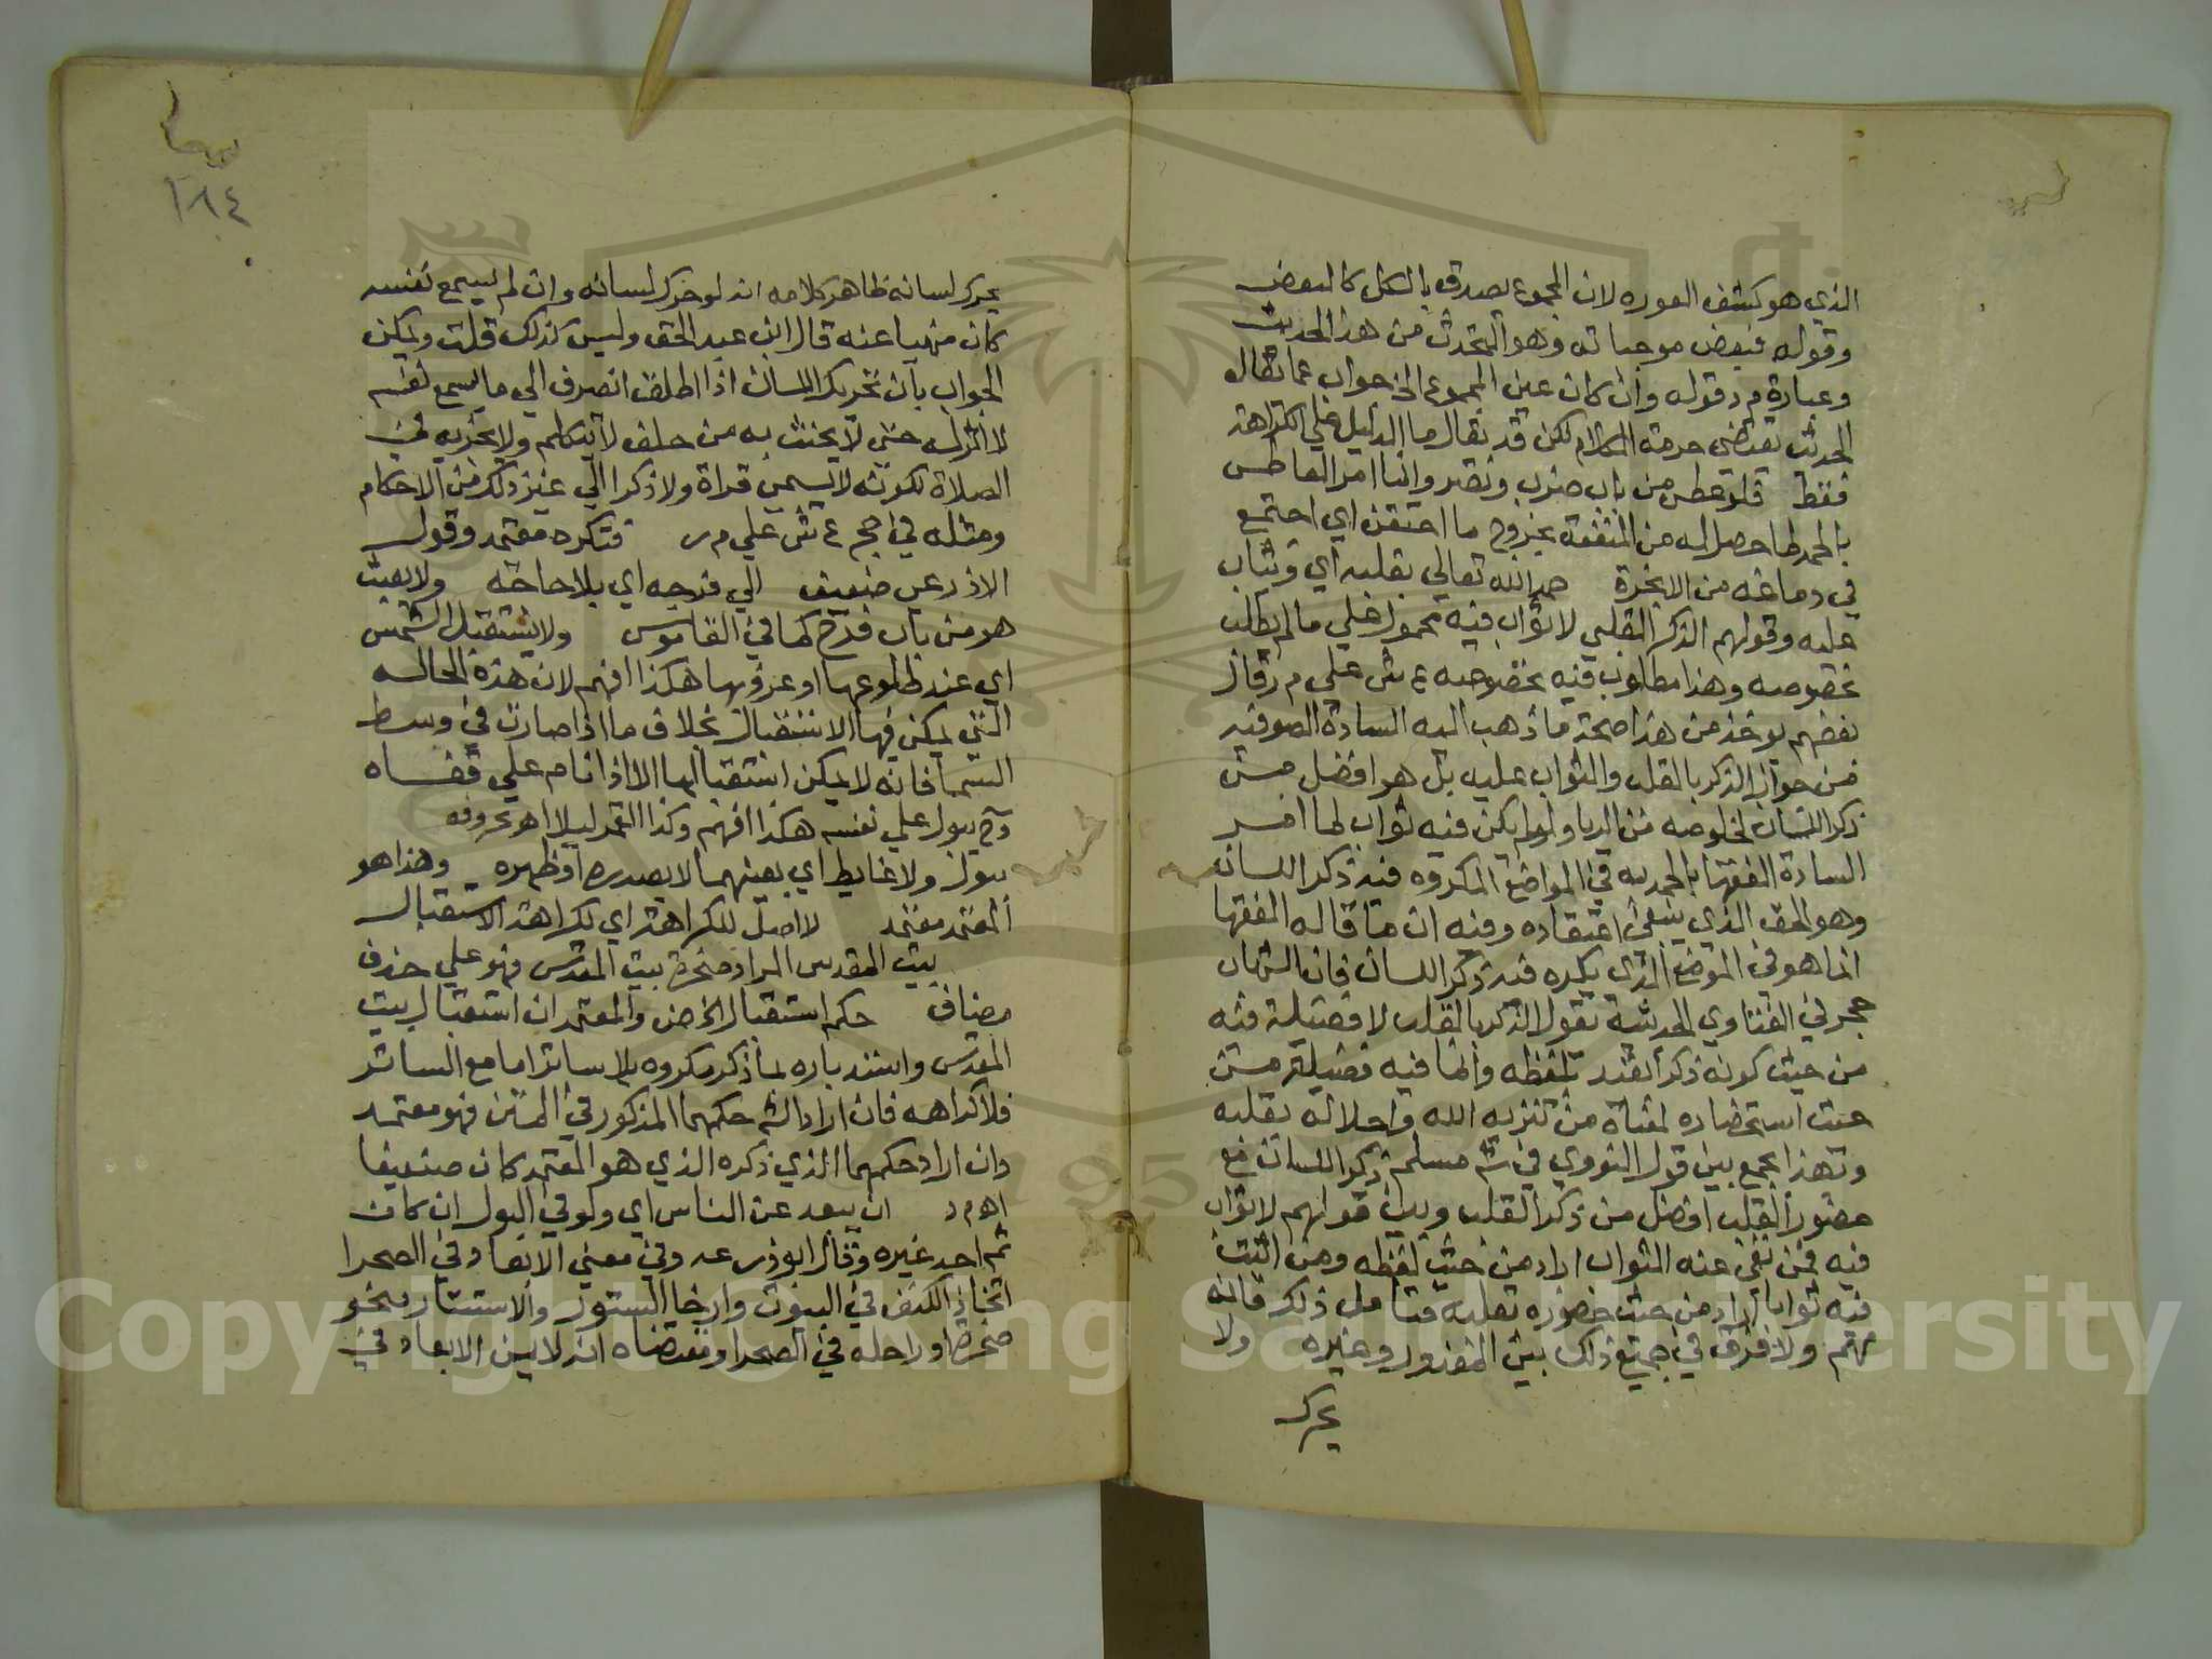 الذي هو كشف العورة لان المجموع يصدق بالكل كالبعض
وقوله فبعض موجباته وهو التحدث من هذا الحديث
وعبارة م ر قوله وان كان عين المجموع الخ جواب عما يقال
الحديث يقتضي حرمة الكلام لكن قد يقال ما الدليل علي الكراهة
فقط قلو عطس من باب ضرب ونصر وانما امر العاطس
بالحمد لما حصل له من المنفعة بخروج ما احتقن اي اجتمع
في دماغه من الابخرة حمد الله تعالي بقلبه اي ويثاب
عليه وقولهم الذكر القلبي لا ثواب فيه محمول علي ما لم يطلب
بخصوصه وهذا مطلوب فيه بخصوصه ع ش علي م ر قال
بعضهم يوخذ من هذا صحة ما ذهب اليه السادة الصوفيه
من جواز الذكر بالقلب والثواب عليه بل هو افضل من
ذكر اللسان لخلوصه من الريا ولو لم يكن فيه ثواب لما امر
السادة الفقها بالحمد به في المواضع المكروه فيه ذكر اللسان
وهو الحق الذي ينبغي اعتقاده وفيه ان ما قاله الفقها
انما هو في الموضع الذي يكره فيه ذكر اللسان فان الشهاب
حجر في الفتاوي الحديثية يقول الذكر بالقلب لا فضيلة فيه
من حيث كونه ذكرا تعبد بلفظه وانما فيه فضيلة من
حيث استحضاره لمعناه من تنزيه الله واجلاله بقلبه
وبهذا يجمع بين قول النووي في شم مسلم ذكر اللسان مع
حضور القلب افضل من ذكر القلب وبين قولهم لا ثواب
فيه فمن نفي عنه الثواب اراد من حيث لفظه ومن اثبت
فيه ثوابا اراد من حيث حضوره بقلبه فتامل ذلك فانه
مهم ولا فرق في جميع ذلك بين المعذور وغيره ولا
يحرك
١٨٤
يحرك لسانه ظاهر كلامه انه لو حرك لسانه وان لم يسمع نفسه
كان منهيا عنه قال ابن عبد الحق وليس كذلك قلت ويمكن
الجواب بان تحريك اللسان اذا اطلق انصرف الي ما يسمع نفسه
لا اثر له حتي لا يحنث به من حلف لا يتكلم ولا يجزيه في
الصلاة لكونه لا يسمي قراة ولا ذكرا الي غير ذلك من الاحكام
ومثله في حج ع ش علي م ر فتكره معتمد وقول
الاذرعي ضعيف الي فرجه اي بلا حاجة ولا يعبث
هو من باب فرح كما في القاموس ولا يستقبل الشمس
اي عند طلوعها او غروبها هكذا افهم لان هذه الحاله
التي يمكن فيها الاستقبال بخلاف ما اذا صارت في وسط
السما فانه لا يمكن استقبالها الا اذا نام علي قفاه
وح يبول علي نفسه هكذا افهم وكذا القمر ليلا اهـ بحروفه
ببول ولا غايط اي بعينهما لا بصدره او ظهره وهذا هو
المعتمد معتمد لا اصل للكراهة اي لكراهة الاستقبال
بيت المقدس المراد صخرة بيت المقدس فهو علي حذف
مضاف حكم استقبال الخ ض والمعتمد ان استقبال بيت
المقدس واستدباره لما ذكر مكروه بلا ساتر اما مع الساتر
فلا كراهه فان اراد الشم حكمهما المذكور في المتن فهو معتمد
وان اراد حكمهما الذي ذكره الذي هو المعتمد كان ضعيفا
اهـ م د ان يبعد عن الناس اي ولو في البول ان كان
ثم احد غيره وقال ابو زرعه وفي معني الابعاد في الصحرا
اتخاذ الكنف في البيوت وارخا الستور والاستتار بنحو
صخرة او راحله في الصحرا ومقتضاه انه لا يسن الابعاد في
Copyright © King Saud University